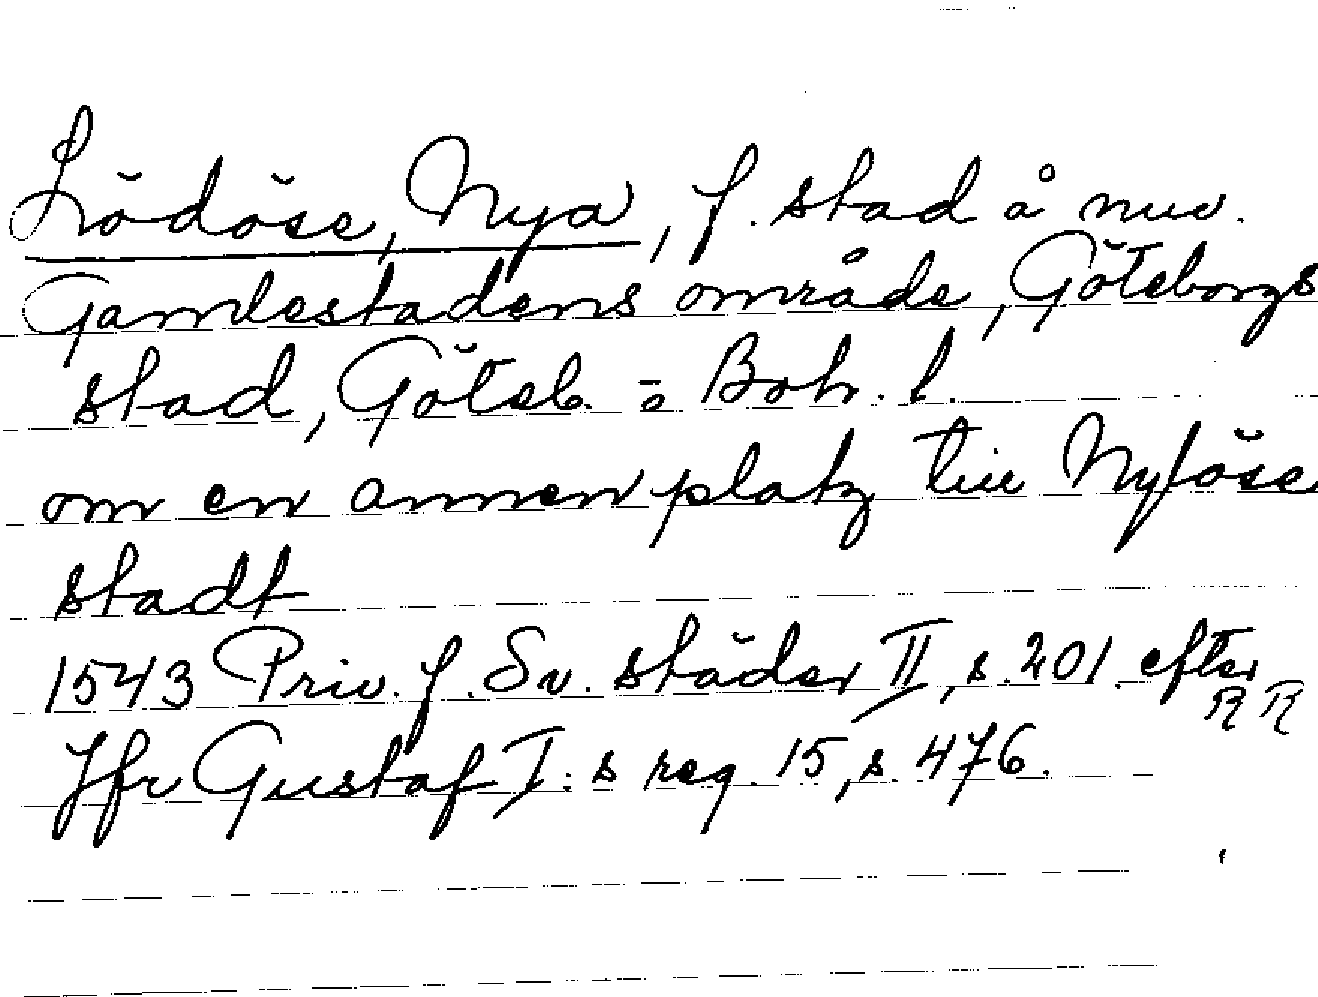 Lödöse, Nya, f. stad å nuv.
Gamlestadens område, Göteborgs
stad, Göteb. o Boh. l.
om en annen platz till Nylöse
stadt
1543 Priv. f. Sv. städer II, s. 201 efter
RR
Jfr Gustaf I:s reg. 15, s. 476.